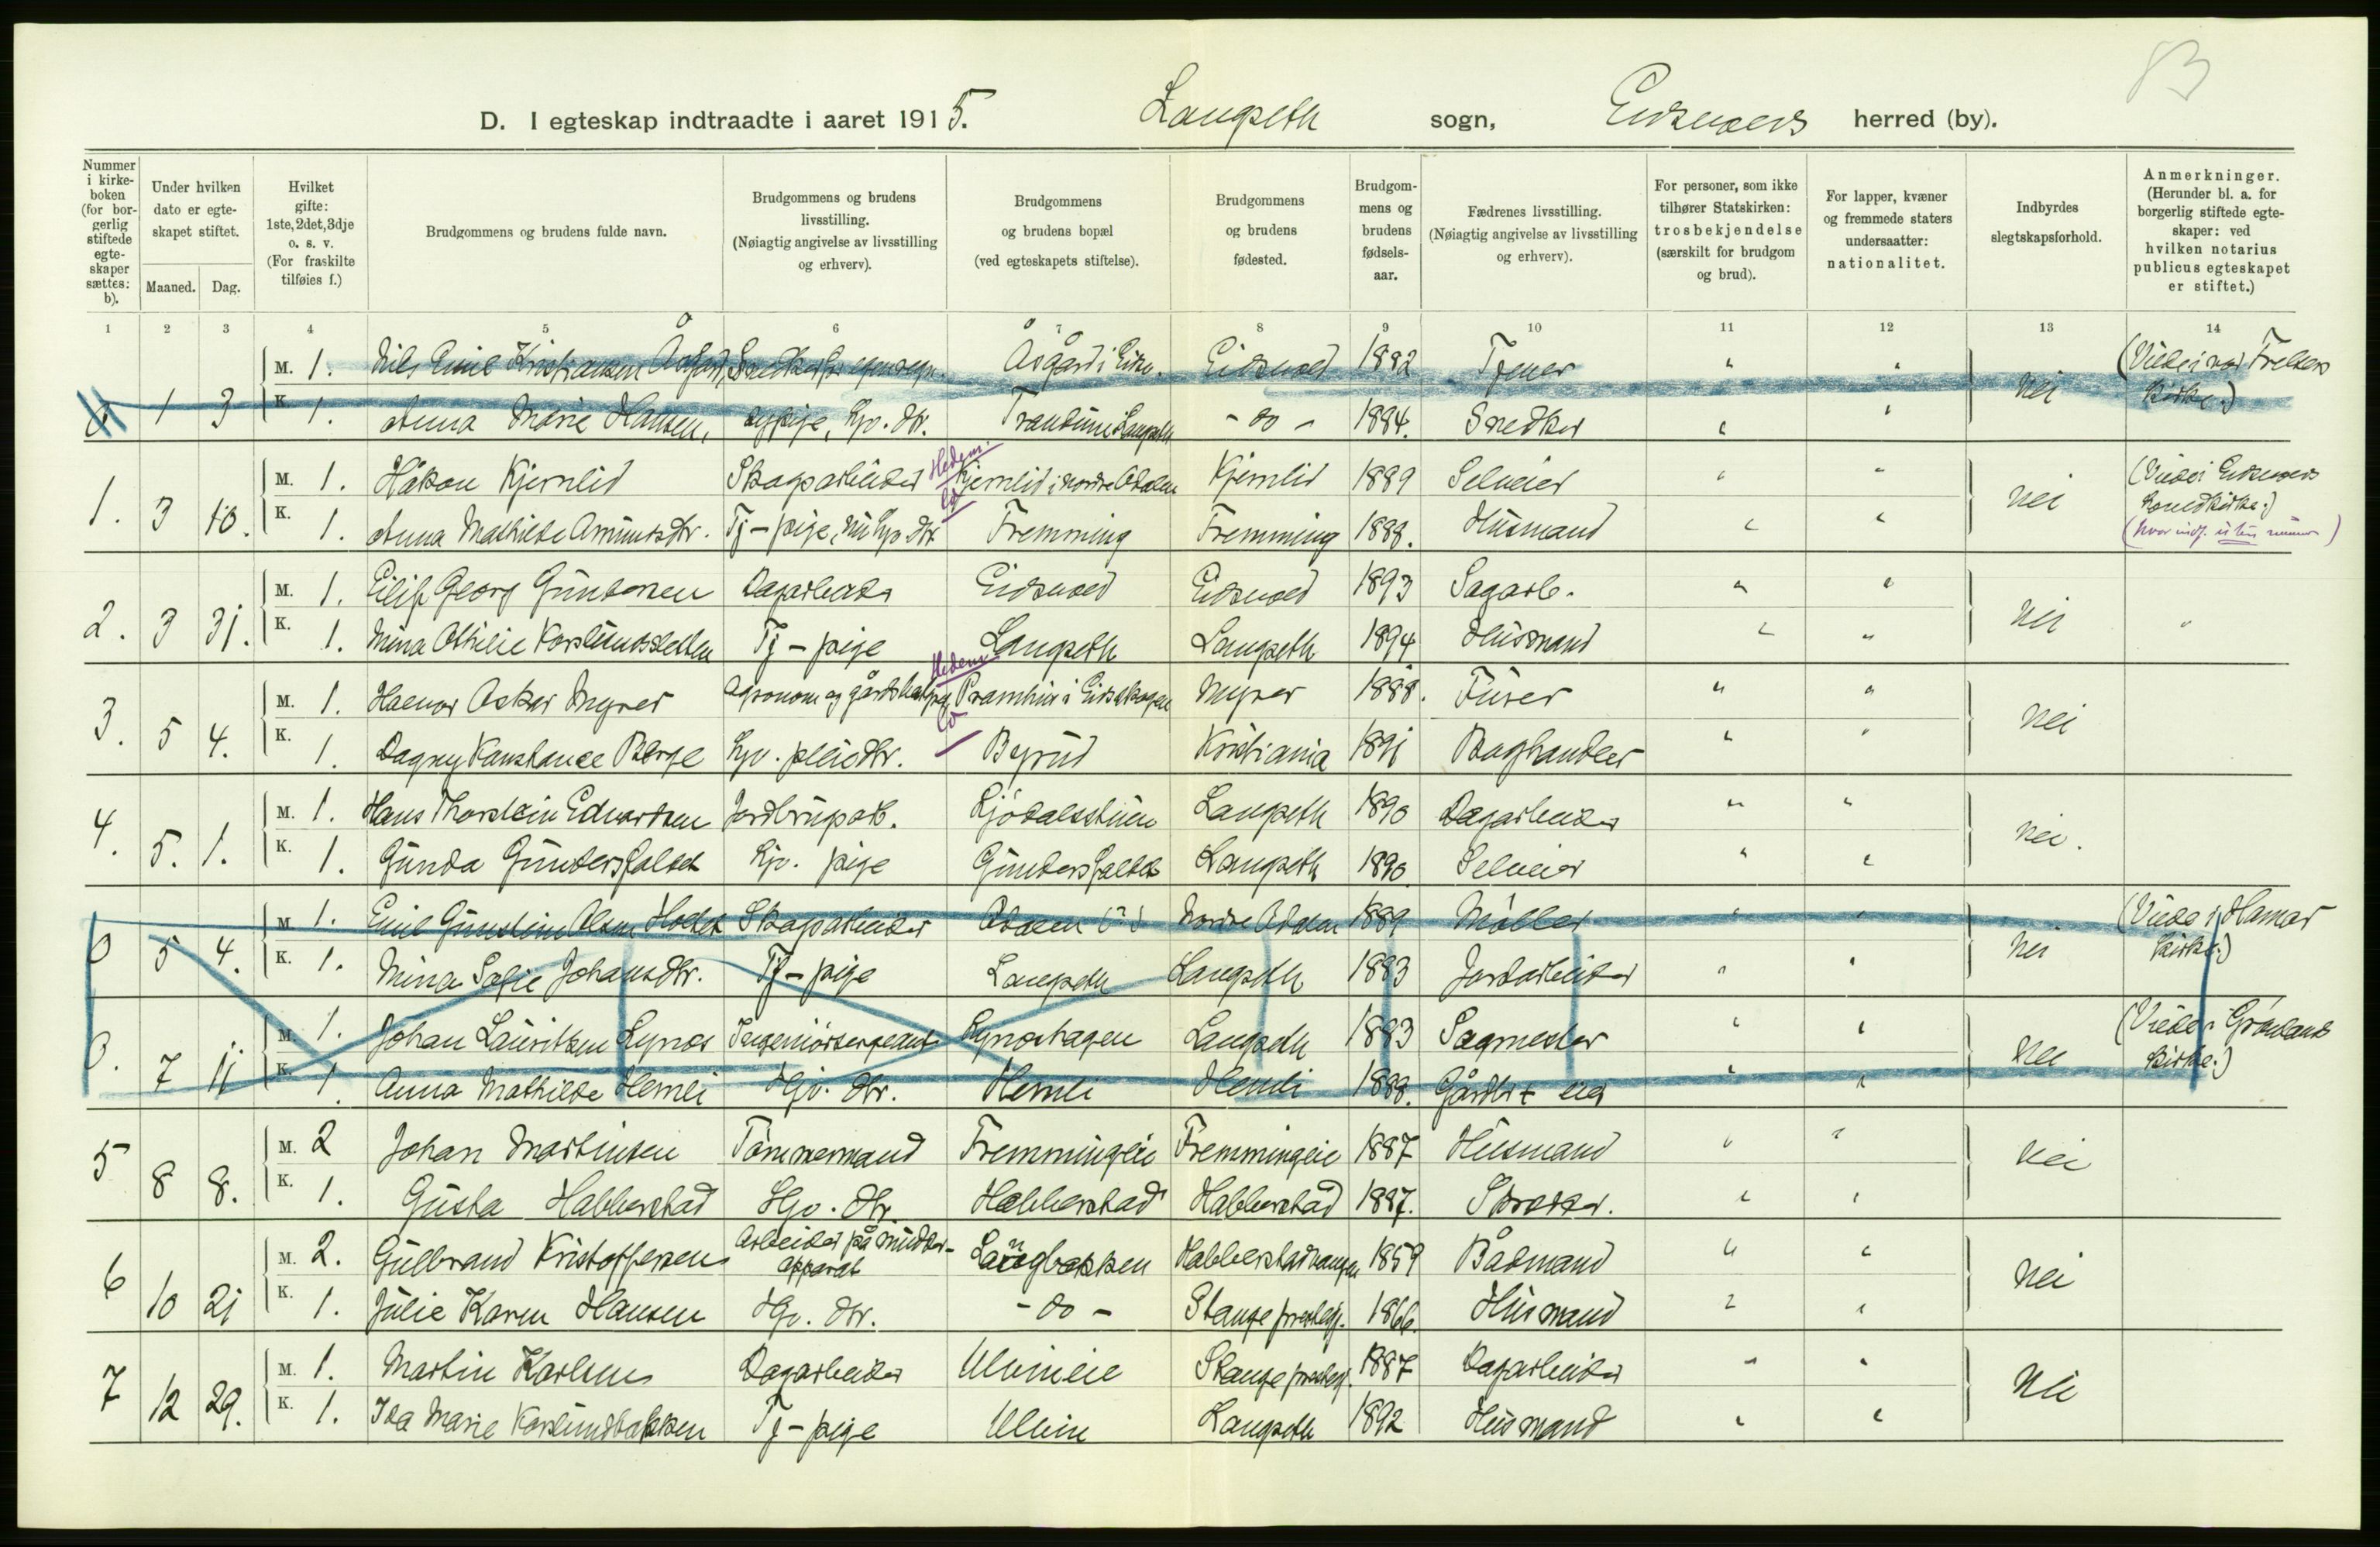 83
D. I egteskap indtraadte i aaret 1915. Langseth sogn, Eidsvolds herred (by).
Nummer i kirkeboken (for borgerlig stiftede egteskaper sættes: b).
Under hvilken dato er egteskapet stiftet.
Maaned. Dag.
Hvilket gifte: 1ste, 2det, 3dje o. s. v. (For fraskilte tilføies f.)
Brudgommens og brudens fulde navn.
Brudgommens og brudens livsstilling. (Nøiagtig angivelse av livsstilling og erhverv).
Brudgommens og brudens bopæl (ved egteskapets stiftelse).
Brudgommens og brudens fødested.
Brudgommens og brudens fødsels-aar.
Fædrenes livsstilling. (Nøiagtig angivelse av livsstilling og erhverv).
For personer, som ikke tilhører Statskirken: trosbekjendelse (særskilt for brudgom og brud).
For lapper, kvæner og fremmede staters undersaatter: nationalitet.
Indbyrdes slegtskapsforhold.
Anmerkninger. (Herunder bl. a. for borgerlig stiftede egteskaper: ved hvilken notarius publicus egteskapet er stiftet.)
1 2 3 4 5 6 7 8 9 10 11 12 13 14
M. 1. Nils Emil Kristiansen Åsgård, Snedker for egen regn. Åsgård i Eidsv. Eidsvold 1882 " " (Viede i vor Frelsers
0 1 3 K. 1. Anna Marie Hansen, sypige, hjv. dtr. Langseth - do - 1884. Snedker " " nei kirke.)
Hedem.
M. 1. Håkon Kjernlid Skogsarbeider Kjernlid i nordre Odalen Kjernlid 1889 Selveier " " (Viede i Eidsvolds
1. 3 10. K. 1. Anna Mathilde Amundsdtr. Tj-pige, nu hjv. dtr. Fremming Fremming 1888. Husmand " " nei hovedkirke.)
(hvor indf. uten nummer)
M. 1. Eilif Georg Gundersen Dagarbeider Eidsvold Eidsvold 1893 Sagarb. " "
2. 3 31. K. 1. Mina Othilie Korslundsletten Tj-pige Langseth Langseth 1894 Husmand " " nei "
Hedem.
M. 1. Haavar Asker Myrer Agronom og gårdsbestyrer i Eidskogen Myrer 1888. " "
3. 5 4. K. 1. Dagny Konstance Berge hjv. pleiedtr. Byrud Kristiania 1891 Boghandler " " nei
M. 1. Hans Thorstein Edvardsen Jordbrugsarb. Ljødalsstuen Langseth 1890 Dagarbeider " "
4. 5. 1. K. 1. Gunda Gundersfaldet hjv. pige Gundersfaldet Langseth 1890 Selveier " " nei.
M. 1. Emil Gunstein Olsen Skogsarbeider Odalen (?) Nordre Odalen 1889 Møller " " (Viede i Hamar
0 5 4. K. 1. Mina Sofie Johansdtr. Tj-pige Langseth Langseth 1883 Jordarbeider " " nei kirke.)
M. 1. Johan Lauritsen Lynæs Ingeniørsergeant Lynæshagen Langseth 1883 Sagmester " " (Viede i Grønlands
0. 7 11 K. 1. Anna Mathilde Hemli Hjv. dtr. Hemli Hemli 1888. Gårdbr. + eier " " nei kirke.)
M. 2 Johan Martinsen Tømmermand Fremmingeie Fremmingeie 1887 Husmand " "
5 8 8. K. 1. Gusta Habberstad Hjv. dtr. Habberstad Habberstad 1887. Skrædder. " " nei
M. 2. Gulbrand Kristoffersen Arbeider på mudderapparat Langbakken Habberstadvangen 1859 Bådmand " "
6 10 21 K. 1. Julie Karen Hansen Hjv. dtr. - do - Stange prestegj. 1866. Husmand " " nei
M. 1. Martin Karlsen Dagarbeider Ulvineie Stange prestegj. 1887 Dagarbeider " "
7 12 29. K. 1. Ida Marie Korslundbakken Tj-pige Ulvin Langseth 1892 Husmand " " nei